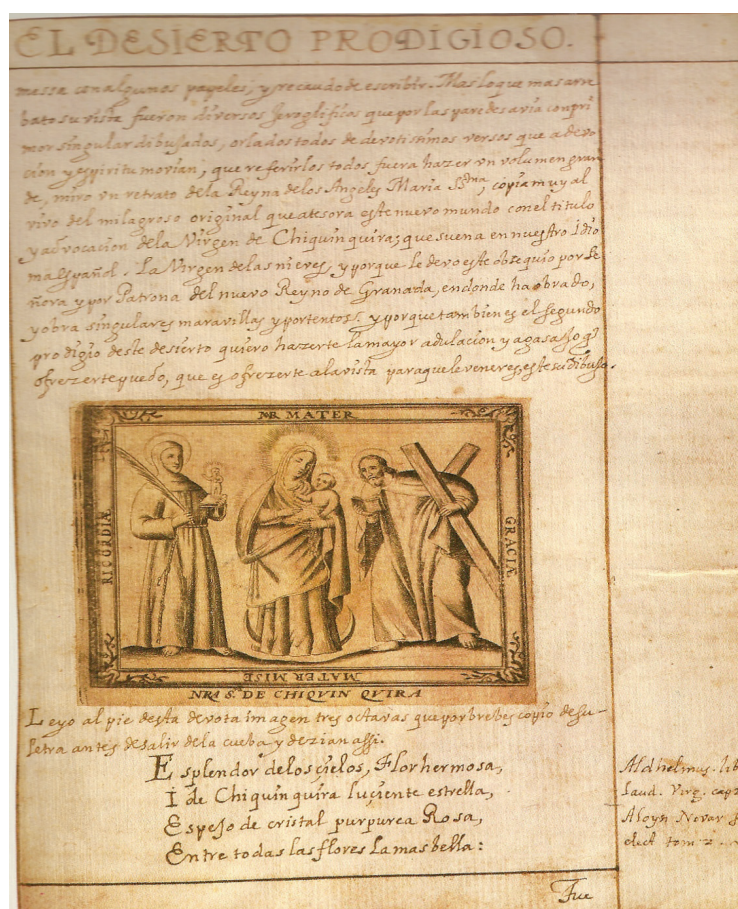 EL DESIERTO PRODIGIOSO.
messa con algunos papeles, y recaudo de escribir. Mas lo que mas arre
bato su vista fueron diversos Jeroglificos que por las paredes avia con pri
mor singular dibujados, orlados todos de devotissimos versos que a devo
cion y espiritu movian, que referirlos todos fuera hazer vn volumen gran
de, miro vn retrato dela Reyna delos Angeles Maria Ss.ma, copia muy al
vivo del milagroso original que atesora este nuevo mundo con el titulo
y advocacion dela Virgen de Chiquinquira; que suena en nuestro Idio
ma Español. La Virgen delas nieves, y porque le devo este obsequio por Se
ñora y por Patrona del nuevo Reyno de Granada, en donde ha obrado,
y obra singulares maravillas y portentos. y porque tambien es el segundo
prodigio deste desierto quiero hazerte la mayor adulacion y agasajo q.
ofrezerte puedo, que es ofrezerte ala vista para que le veneres, este su dibujo.
MATER
GRACIÆ
MATER MISE
RICORDIÆ
NRA S. DE CHIQVIN QVIRA
Leyo al pie desta devota imagen tres octavas que por brebes copio de su
letra antes de salir dela cueba y dezian assi.
Esplendor delos çielos, Flor hermosa,
I de Chiquinquira luçiente estrella,
Espejo de cristal purpurea Rosa,
Entre todas las flores La mas bella:
Fue
Aldhelmus. lib
Laud. Virg. cap
Aloys Novar
elect tom 2